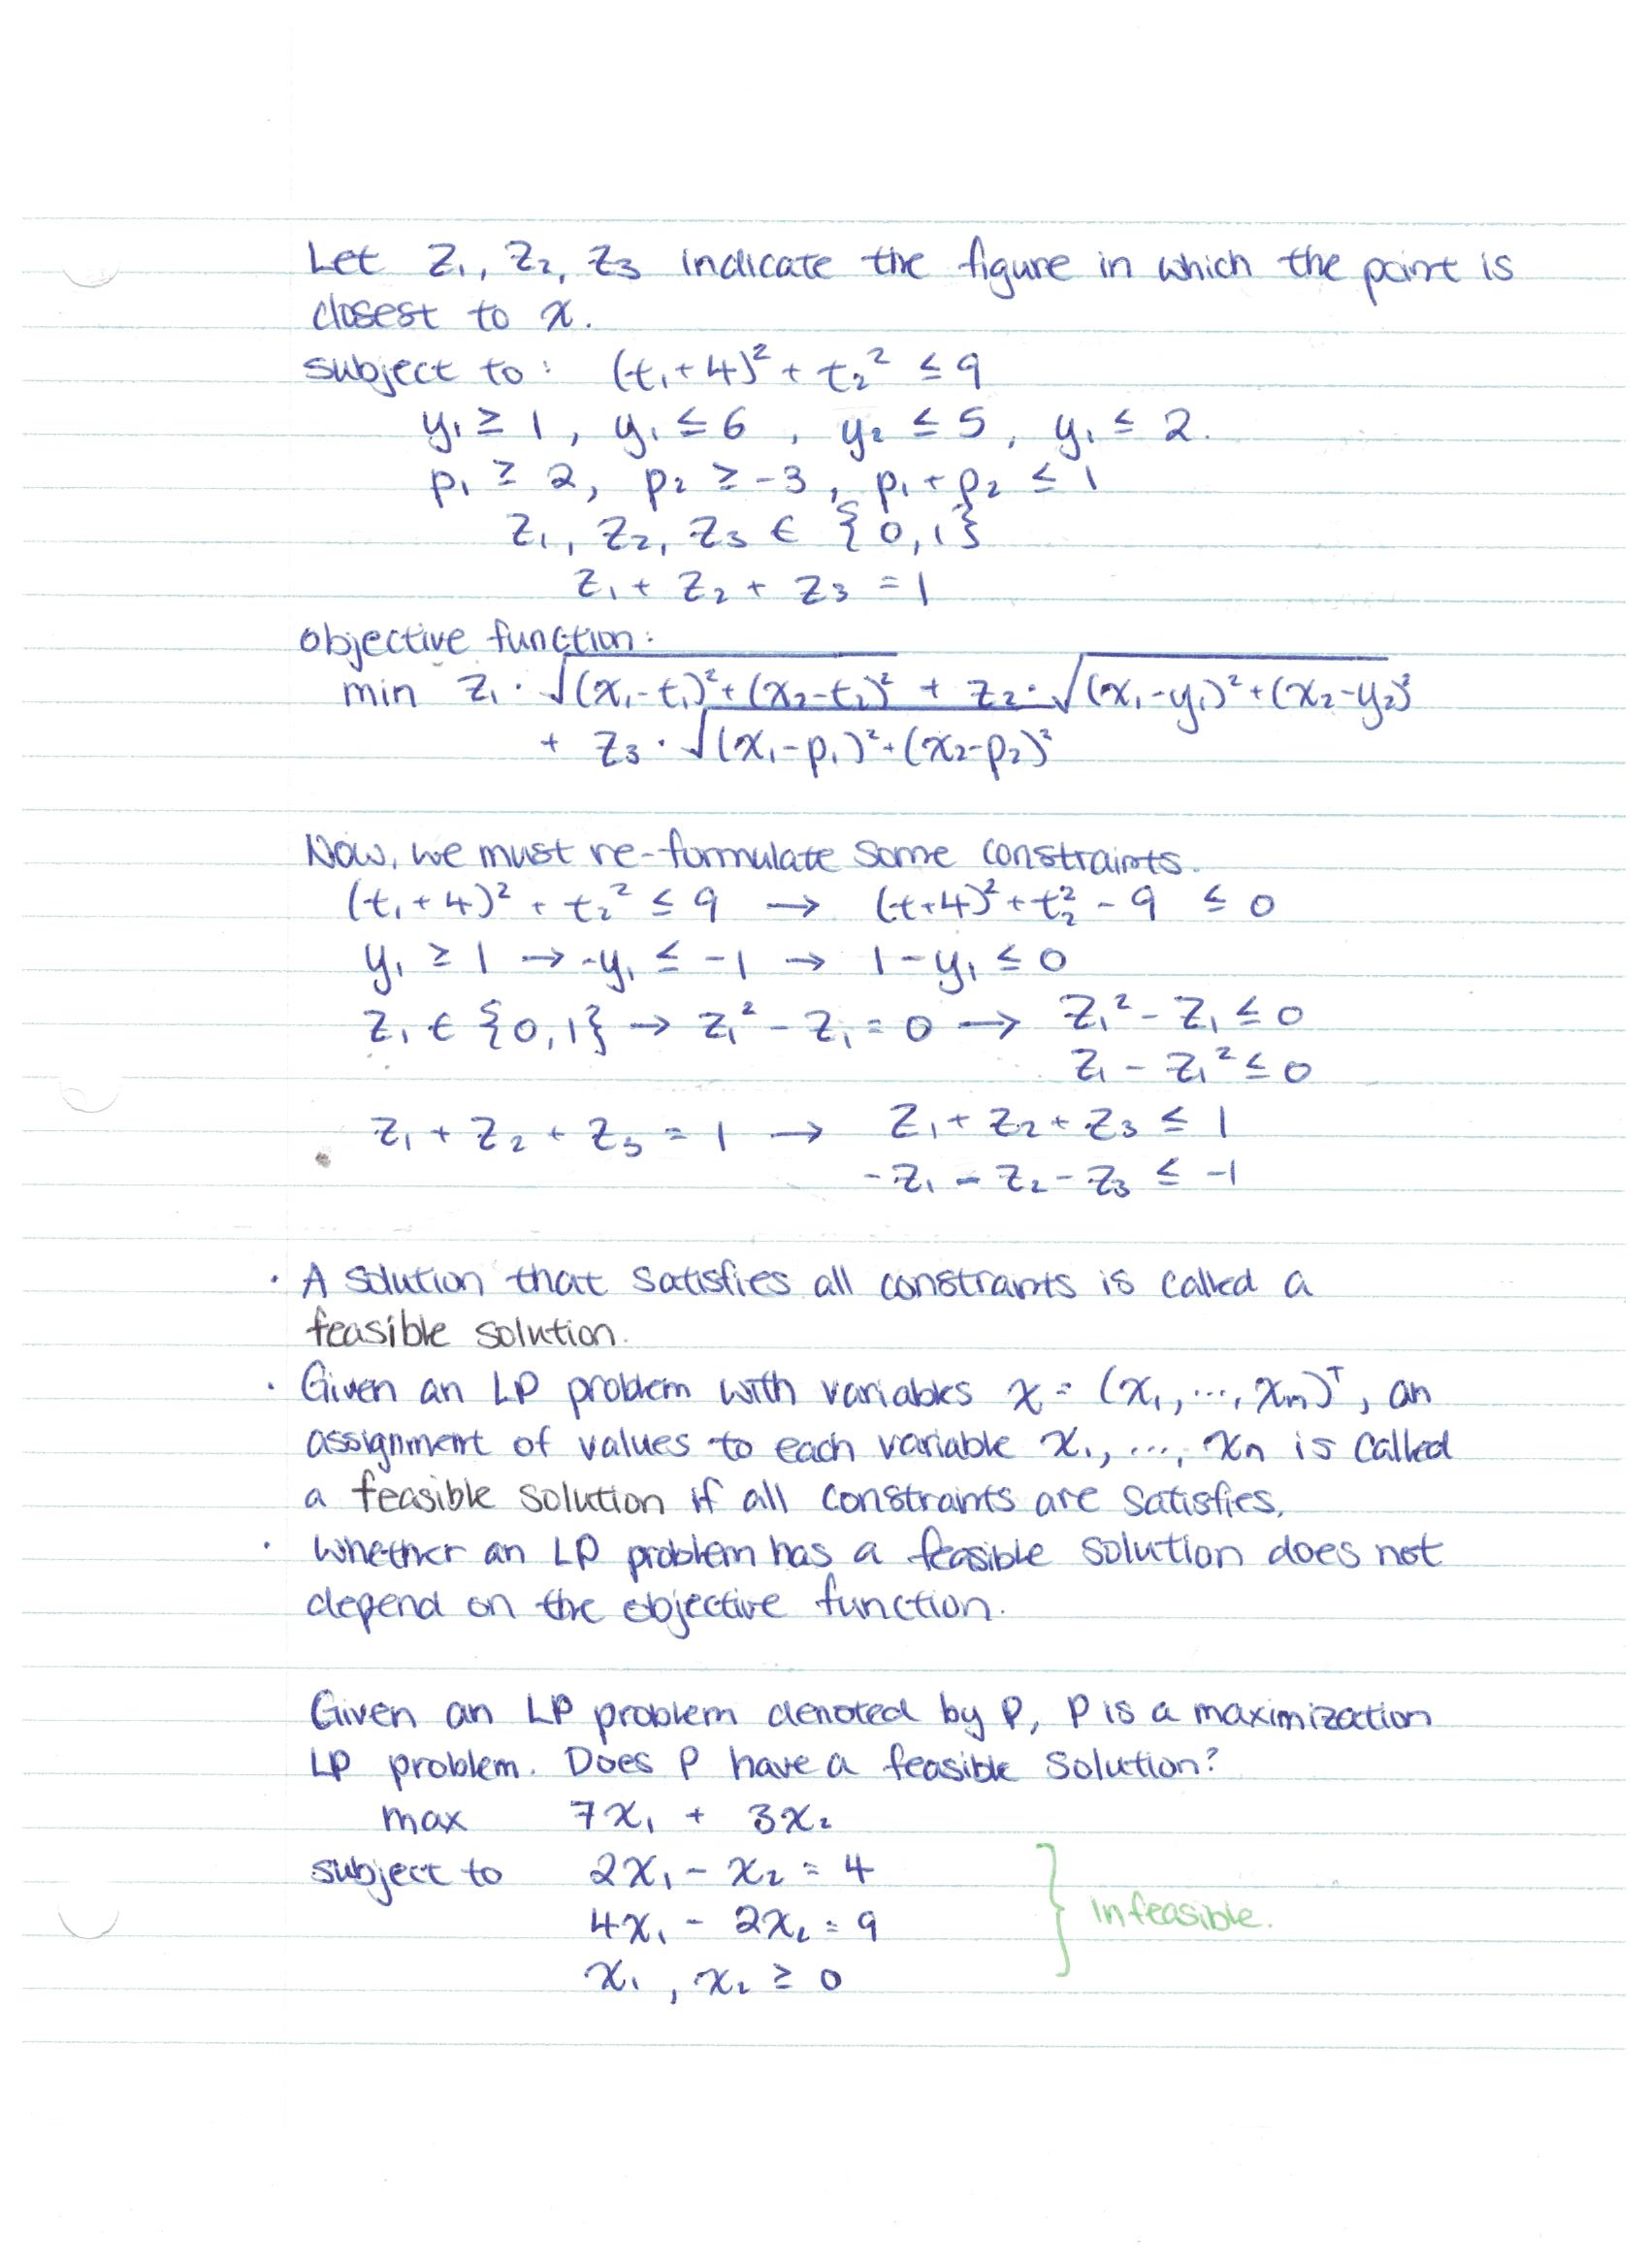 Let Z₁, Z₂, Z₃ indicate the figure in which the point is
closest to x.
subject to: (t₁+4)² + t₂² ≤ 9
y₁ ≥ 1, y₁ ≤ 6, y₂ ≤ 5, y₁ ≤ 2.
p₁ ≥ 2, p₂ ≥ -3, p₁ + p₂ ≤ 1
Z₁, Z₂, Z₃ ∈ {0,1}
Z₁ + Z₂ + Z₃ = 1
objective function:
min Z₁ · √((x₁-t₁)²+(x₂-t₂)²) + Z₂ · √((x₁-y₁)²+(x₂-y₂)²)
+ Z₃ · √((x₁-p₁)²+(x₂-p₂)²)
Now, we must re-formulate some constraints.
(t₁+4)² + t₂² ≤ 9 → (t+4)² + t₂² - 9 ≤ 0
y₁ ≥ 1 → -y₁ ≤ -1 → 1-y₁ ≤ 0
Z₁ ∈ {0,1} → Z₁² - Z₁ = 0 → Z₁² - Z₁ ≤ 0
Z₁ - Z₁² ≤ 0
Z₁ + Z₂ + Z₃ = 1 → Z₁ + Z₂ + Z₃ ≤ 1
-Z₁ - Z₂ - Z₃ ≤ -1
· A solution that satisfies all constraints is called a
feasible solution.
· Given an LP problem with variables x = (x₁, ..., xₙ)ᵀ, an
assignment of values to each variable x₁, ..., xₙ is called
a feasible solution if all constraints are satisfies.
· Whether an LP problem has a feasible solution does not
depend on the objective function.
Given an LP problem denoted by P, P is a maximization
LP problem. Does P have a feasible solution?
max 7x₁ + 3x₂
subject to 2x₁ - x₂ = 4
4x₁ - 2x₂ = 9
x₁, x₂ ≥ 0
} Infeasible.